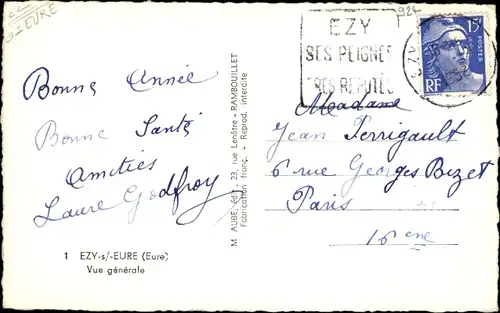 S/EURE
924
EZY
SES PEIGNES
TRES REPUTÉS
15F
POSTES
RF
Bonne Année
Bonne Santé
Amitiés
Laure Godfroy
1 EZY-s/-EURE (Eure)
Vue générale
M. AUBE, édit. 23, rue Lenôtre - RAMBOUILLET
Fabrication franç. - Reprod. interdite
Madame
Jean Perrigault
6 rue Georges Bizet
Paris
16 ème